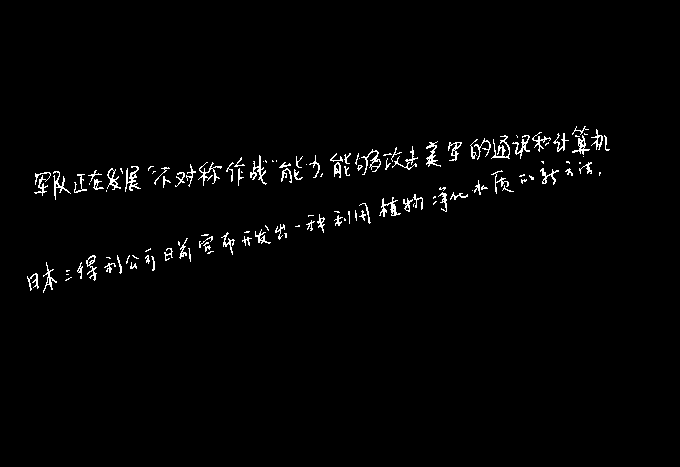 军队正在发展“不对称作战”能力,能够攻击美军的通讯和计算机
日本三得利公司日前宣布开发出一种利用植物净化水质的新方法,